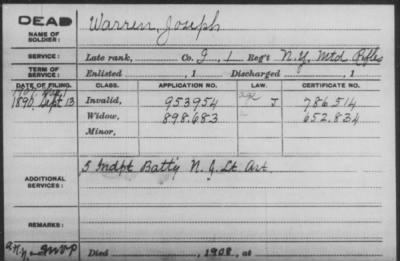 DEAD
NAME OF SOLDIER: Warren, Joseph
SERVICE: Late rank, Co. I, 1 Reg't N.Y. Mtd Rifles
TERM OF SERVICE: Enlisted , 1 Discharged , 1
DATE OF FILING. CLASS. APPLICATION NO. LAW. CERTIFICATE NO.
1890, Sept 13 Invalid, 953954 J 786.514
Widow, 898.683 652.834
Minor,
ADDITIONAL SERVICES: 5 Indpt Batty N.J. Lt. Art.
REMARKS:
Died , 1908, at